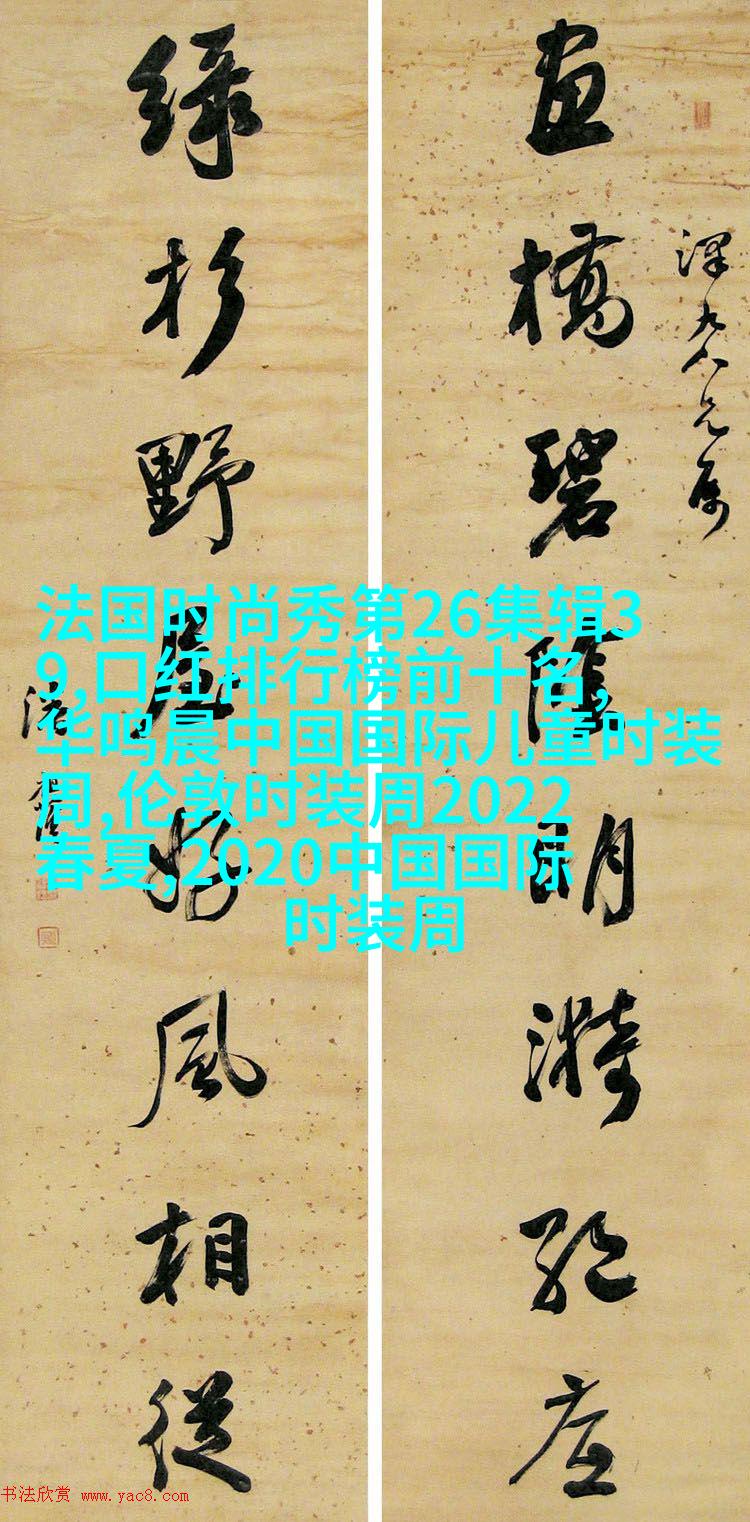 澤九兄属
畫橋碧陰明漪絕底
綠杉野屋好風相從
法国时尚秀第26集辑3
9,口红排行榜前十名,
华鸣晨中国国际儿童时装
周,伦敦时装周2022
春夏,2020中国国际
时装周
书法欣赏 www.yac8.com